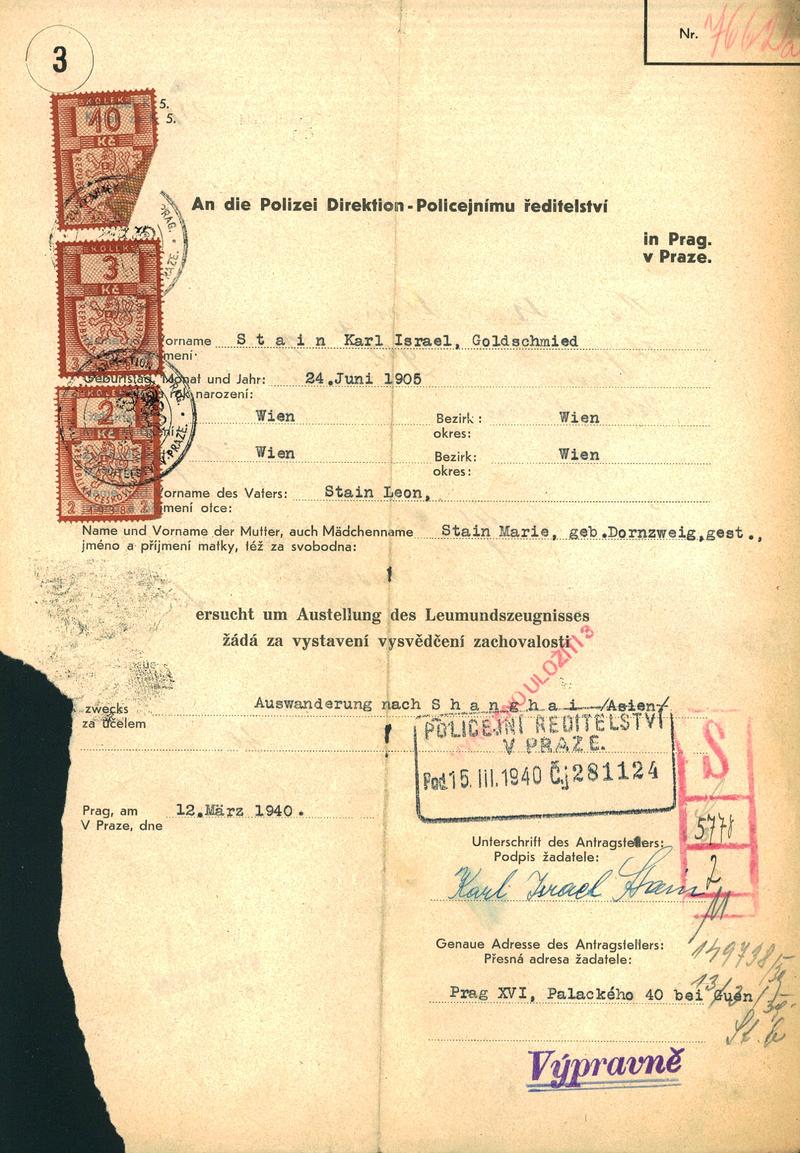 3
Nr. 7662/a
KOLEK
10
Kč
5.
5.
An die Polizei Direktion - Policejnímu ředitelství
in Prag.
v Praze.
KOLEK
3
Kč
orname S t a i n Karl Israel, Goldschmied
mení:
Geburtstag, Monat und Jahr: 24.Juni 1905
rok narození:
2
Kč
Wien Bezirk: Wien
okres:
Wien Bezirk: Wien
okres:
orname des Vaters: Stain Leon,
mení otce:
Name und Vorname der Mutter, auch Mädchenname Stain Marie, geb.Dornzweig,gest.,
jméno a příjmení matky, též za svobodna:
ersucht um Austellung des Leumundszeugnisses
žádá za vystavení vysvědčení zachovalosti
ULOŽITI 3
zwecks Auswanderung nach S h a n g h a i /Asien/
za účelem
POLICEJNÍ ŘEDITELSTVÍ
V PRAZE.
Pod. 15. III. 1940 Čj 281124
S
5778
2
Prag, am 12.März 1940.
V Praze, dne
Unterschrift des Antragstellers:
Podpis žadatele:
Karl Israel Stain
Genaue Adresse des Antragstellers:
Přesná adresa žadatele:
149738/39
13/3
Prag XVI, Palackého 40 bei Guen
Výpravně